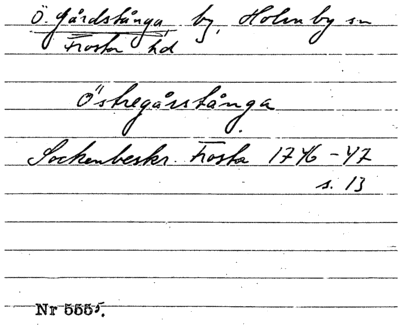 Ö. Gårdstånga, by, Holmby sn
Frosta hd
Östregårstånga
Sockenbeskr. Frosta 1746-47
s. 13
Nr 5555.